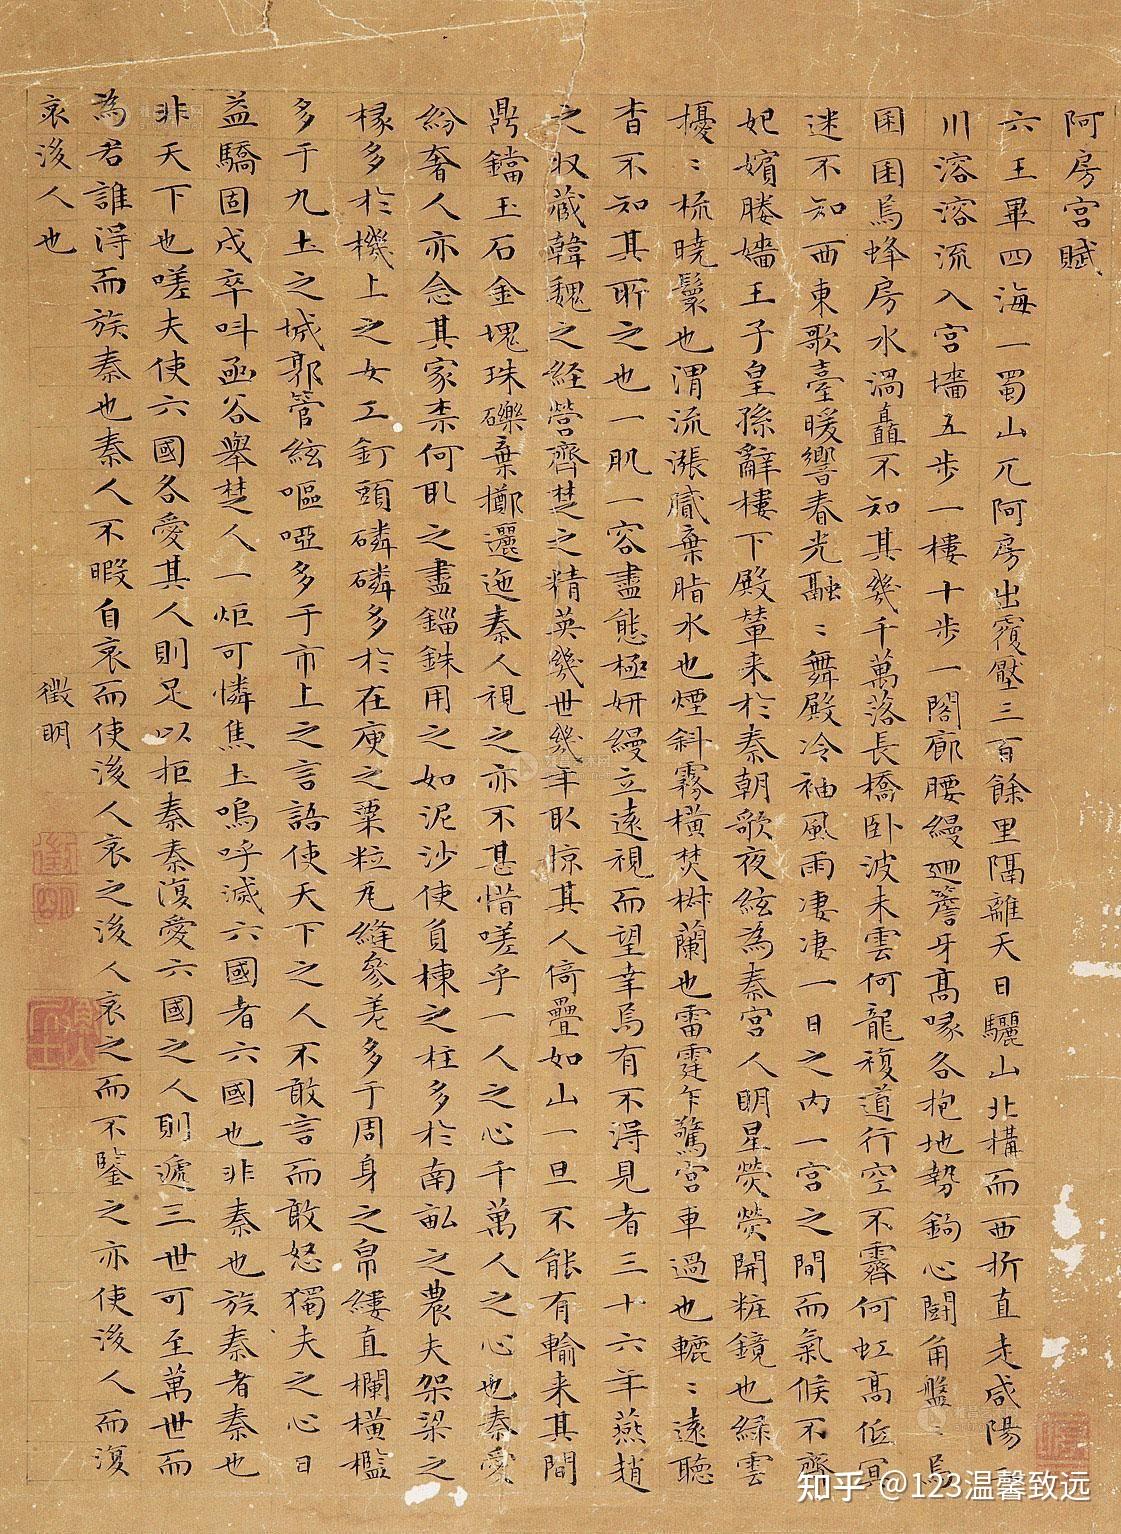 阿房宮賦
六王畢四海一蜀山兀阿房出覆壓三百餘里隔離天日驪山北構而西折直走咸陽二
川溶溶流入宮墻五步一樓十步一閣廊腰縵迴簷牙高喙各抱地勢鉤心鬪角盤〻焉
囷囷焉蜂房水渦矗不知其幾千萬落長橋卧波未雲何龍複道行空不霽何虹高低冥
迷不知西東歌臺暖響春光融〻舞殿冷袖風雨凄凄一日之内一宮之間而氣候不齊
妃嬪媵嬙王子皇孫辭樓下殿輦来於秦朝歌夜絃為秦宮人明星熒熒開粧鏡也綠雲
擾〻梳曉鬟也渭流漲膩棄脂水也煙斜霧橫焚椒蘭也雷霆乍驚宮車過也轆〻遠聽
杳不知其所之也一肌一容盡態極妍縵立遠視而望幸焉有不得見者三十六年燕趙
之収藏韓魏之経營齊楚之精英幾世幾年取掠其人倚疊如山一旦不能有輸来其間
鼎鐺玉石金塊珠礫棄擲邐迤秦人視之亦不甚惜嗟乎一人之心千萬人之心也秦愛
紛奢人亦念其家柰何取之盡錙銖用之如泥沙使負棟之柱多於南畝之農夫架梁之
椽多於機上之女工釘頭磷磷多於在庾之粟粒瓦縫參差多于周身之帛縷直欄橫檻
多于九土之城郭管絃嘔啞多于市上之言語使天下之人不敢言而敢怒獨夫之心日
益驕固戍卒叫函谷舉楚人一炬可憐焦土嗚呼滅六國者六國也非秦也族秦者秦也
非天下也嗟夫使六國各愛其人則足以拒秦秦復愛六國之人則遞三世可至萬世而
為君誰得而族秦也秦人不暇自哀而使後人哀之後人哀之而不鑒之亦使後人而復
哀後人也
徵明
知乎 @123温馨致远